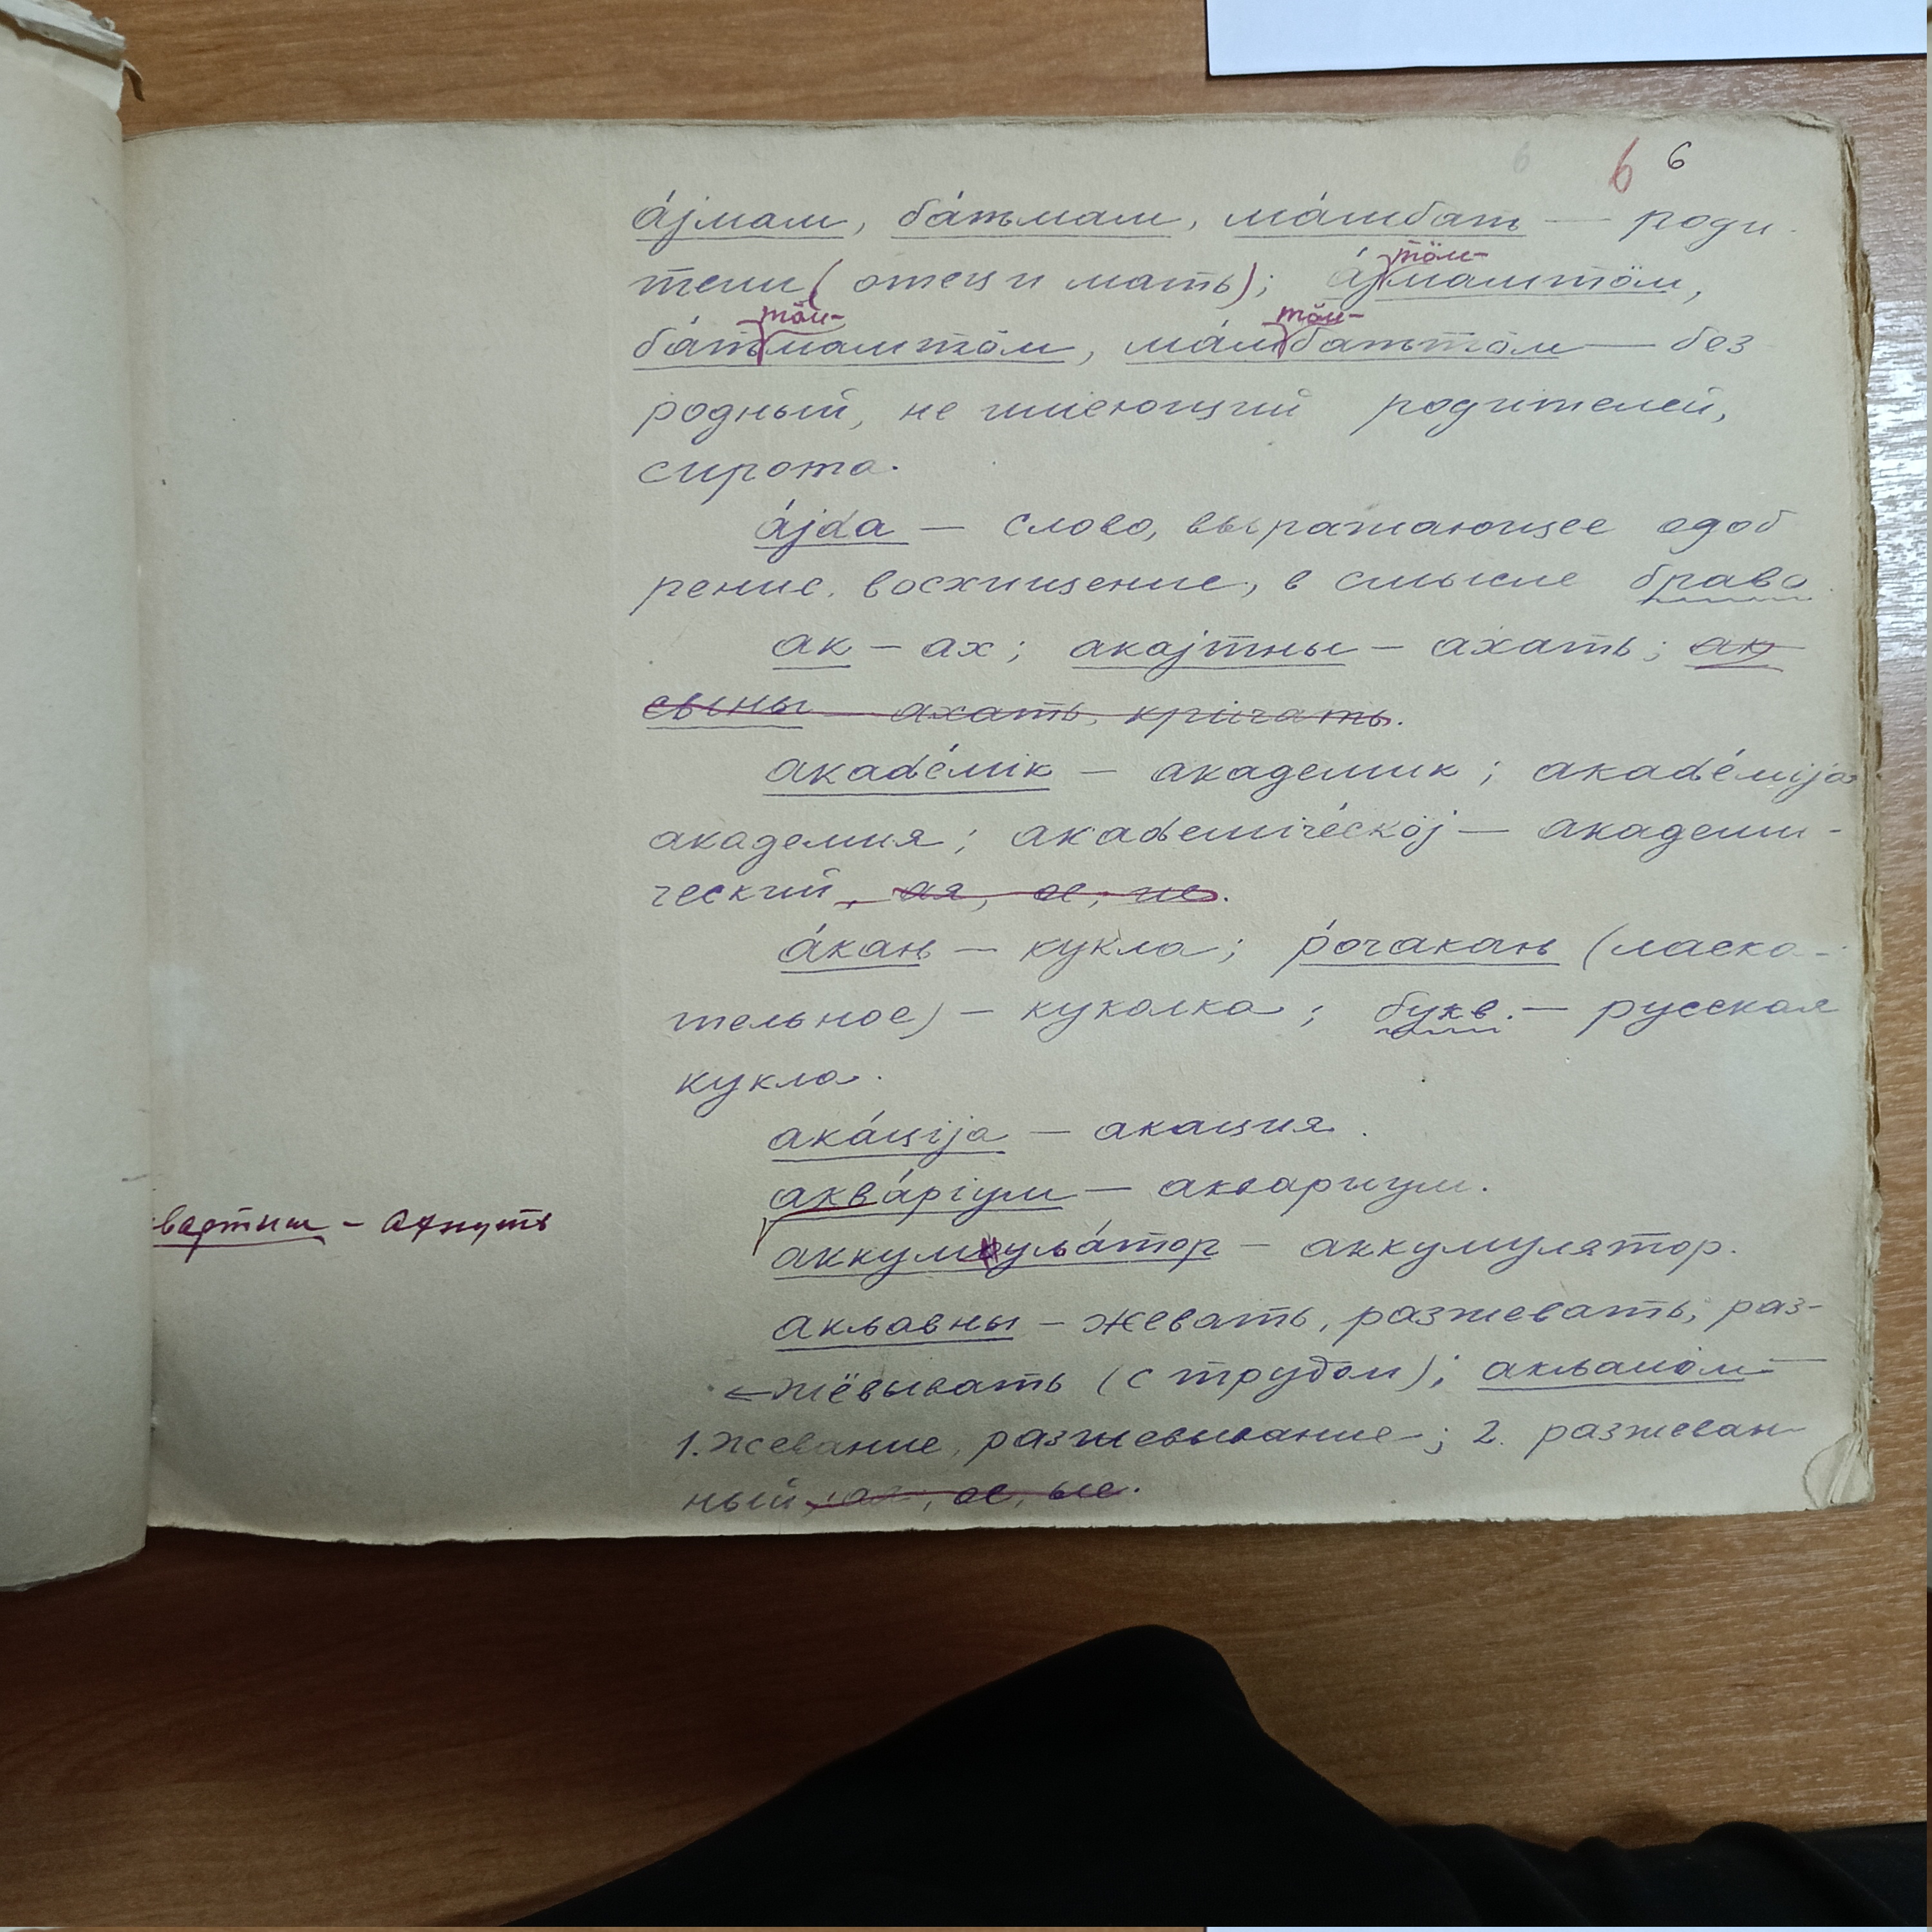 6 6
а́јмам, ба́тьмам, ма́мбат — роди-
тели (отец и мать); а́јмамтӧм,
тӧм-
ба́тмамтӧм, ма́мбатьтӧм — без
тӧм- тӧм-
родный, не имеющий родителей,
сирота.
а́јdа — слово, выражающее одоб
рение, восхищение, в смысле браво
ак — ах; акајтны — ахать; ак
сыны — ахать, кричать.
акаdе́мік — академик; акаdе́міја
академия; акаdеміче́скӧј — академи-
ческий, ая, ое, ие.
а́кань — кукла; ро́чакань (ласка-
тельное) — куколка; букв. — русская
кукла.
ака́ціја — акация.
аква́ріум — аквариум.
вартны — ахнуть
аккумуԉа́тор — аккумулятор.
акԉавны — жевать, разжевать, раз-
жёвывать (с трудом); акԉалӧм —
1. жевание, разжевывание; 2. разжеван
ный, ая, ое, ые.